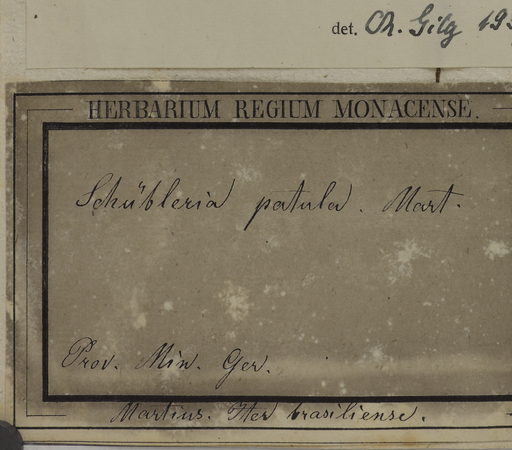 det. Ch. Gilg 193
HERBARIUM REGIUM MONACENSE.
Schübleria patula. Mart.
Prov. Min. Ger.
Martius. Iter brasiliense.